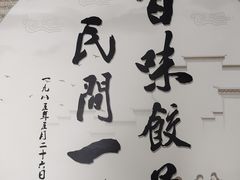 百味餃子
民間一
一九八五年五月二十六日